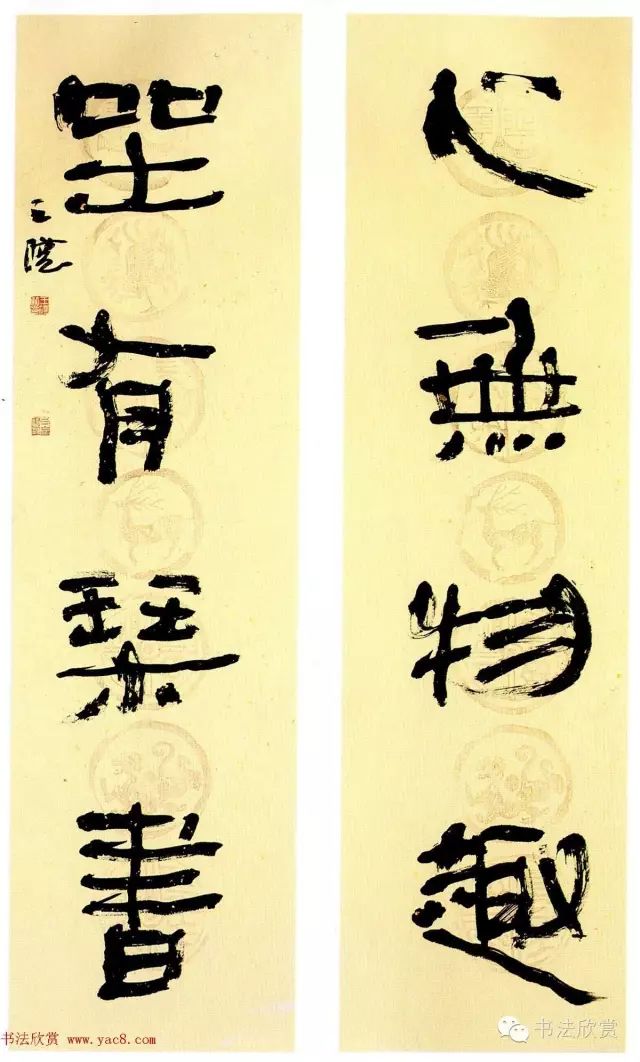 心無物趣
坐有琹書
王鏞
书法欣赏 www.yac8.com
书法欣赏